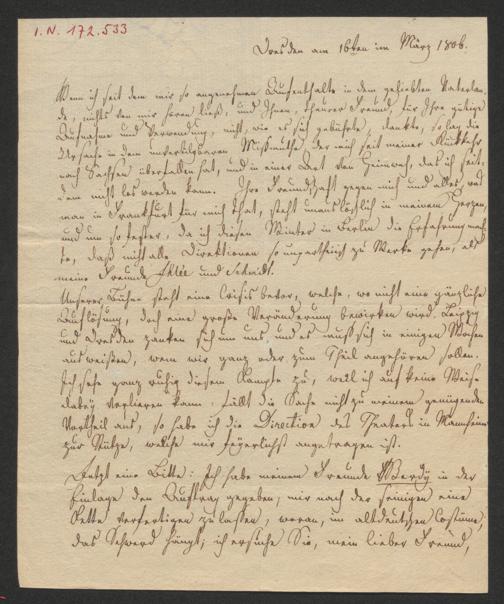 I.N. 172.533
Dresden am 16ten im März 1806.
Wenn ich seit dem mir so angenehmen Aufenthalte in dem geliebten Vaterlan-
de, nichts von mir hören ließ, und Ihnen, theurer Freund, für Ihre gütige
Aufnahme und Verwendung, nicht, wie es sich gebührte, dankte, so lag die
Ursache in dem unverkennbaren Mißmuthe, der mich seit meiner Rückkehr
nach Sachsen überfallen hat, und in einer Art von Heimweh, das ich seit-
dem nicht los werden kann. Ihre Freundschaft gegen mich und alles, was
man in Frankfurt für mich that, steht unauslöschlich in meinem Herzen,
und um so fester, da ich diesen Winter in Berlin die Erfahrung mach-
te, daß nicht alle Direktionen so unpartheiisch zu Werke gehen, als
meine Freunde und Schmidt.
Unserer Bühne steht eine Crisis bevor, welche, wo nicht eine gänzliche
Auflösung, doch eine große Veränderung bewirken wird. Leipzig
und Dresden zanken sich um uns, und es muß sich in einigen Wochen
ausweißen, wem wir ganz oder zum Theil angehören sollen.
Ich sehe ganz ruhig diesem Kampfe zu, weil ich auf keine Weise
dabey verlieren kann. Fällt die Sache nicht zu meinem genügenden
Vortheil aus, so habe ich die Direction des Theaters in Mannheim
zur Stütze, welche mir feyerlichst angetragen ist.
Jetzt eine Bitte: Ich habe meinem Freunde Werdy in der
Einlage den Auftrag gegeben, mir nach der seinigen eine
Kette verfertigen zu lassen, woran, im altdeutschen Costume,
das Schwerd hängt; ich ersuche Sie, mein lieber Freund,